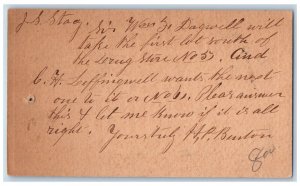 J. S. Stag. Mr Dagwell will
take the first lot south of
the Drug Store No 5. And
C. H. Leffingwell wants the next
one to it or No 6. Please answer
this & let me know if it is all
right. Yours truly Benton